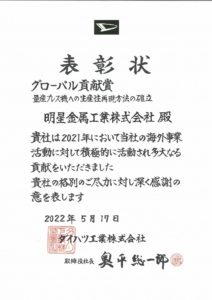 表彰状
グローバル貢献賞
量産プレス機への生産性再現方法の確立
明星金属工業株式会社 殿
貴社は2021年において当社の海外事業
活動に対して積極的に活動され多大なる
貢献をいただきました
貴社の格別のご尽力に対し深く感謝の
意を表します
2022年5月17日
ダイハツ工業株式会社
取締役社長 奥平総一郎